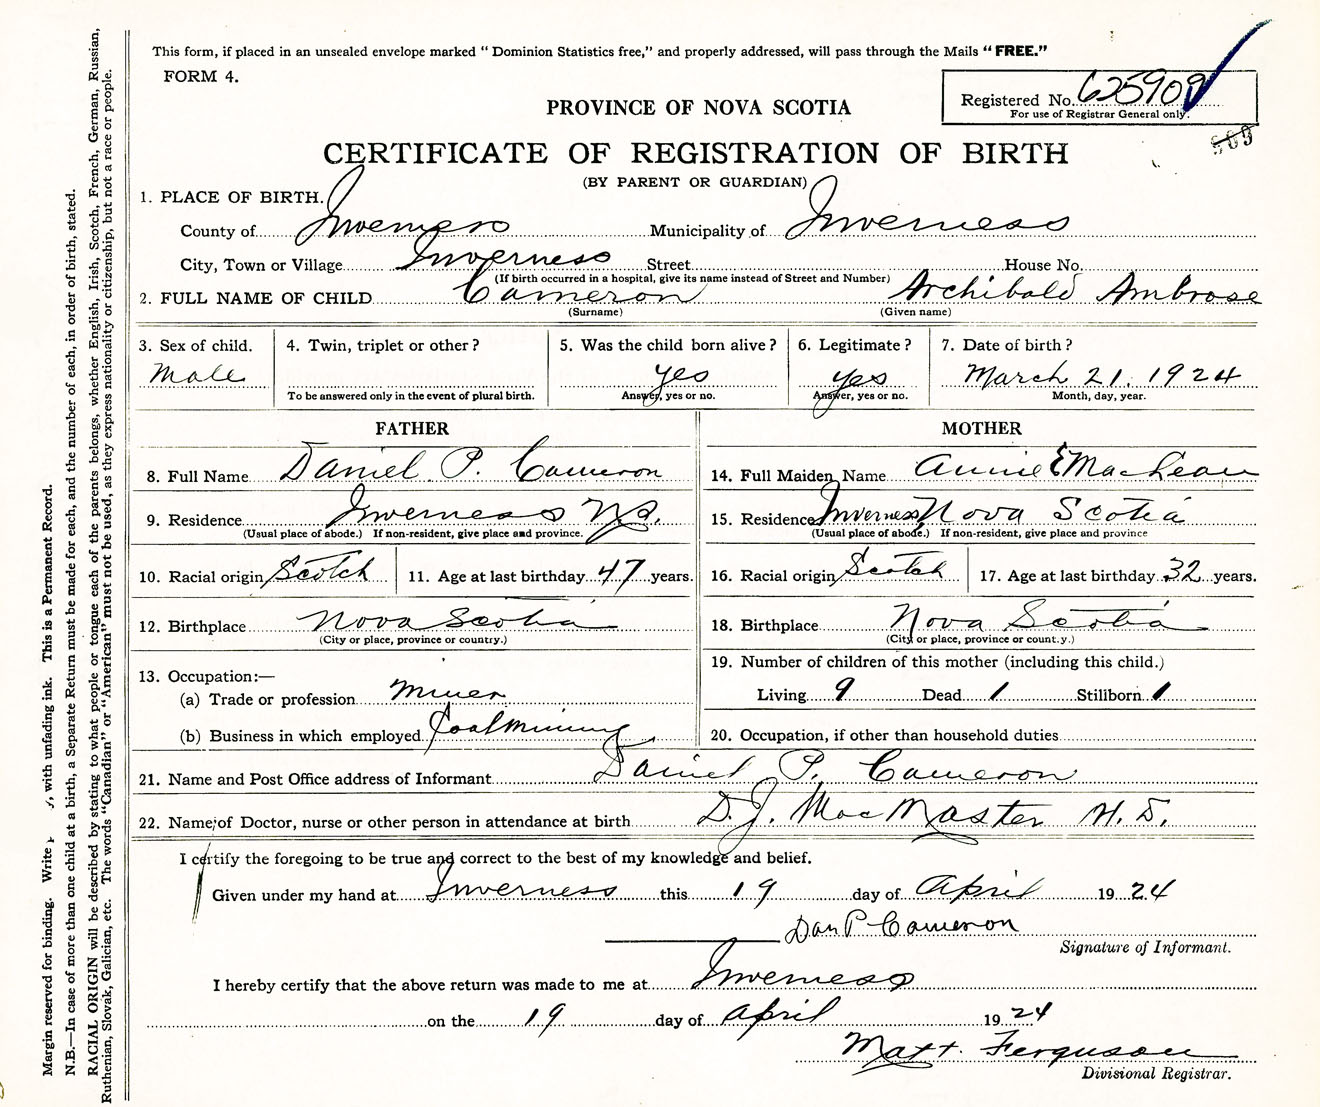 This form, if placed in an unsealed envelope marked “Dominion Statistics free,” and properly addressed, will pass through the Mails “FREE.”
FORM 4.
Registered No. 625909
For use of Registrar General only.
PROVINCE OF NOVA SCOTIA
909
CERTIFICATE OF REGISTRATION OF BIRTH
(BY PARENT OR GUARDIAN)
1. PLACE OF BIRTH.
County of Inverness Municipality of Inverness
City, Town or Village Inverness Street House No.
(If birth occurred in a hospital, give its name instead of Street and Number)
2. FULL NAME OF CHILD Cameron Archibald Ambrose
(Surname) (Given name)
3. Sex of child. 4. Twin, triplet or other? 5. Was the child born alive? 6. Legitimate? 7. Date of birth?
Male yes yes March 21. 1924
To be answered only in the event of plural birth. Answer, yes or no. Answer, yes or no. Month, day, year.
FATHER
8. Full Name Daniel P. Cameron
9. Residence Inverness N.S.
(Usual place of abode.) If non-resident, give place and province.
10. Racial origin Scotch 11. Age at last birthday 47 years.
12. Birthplace Nova Scotia
(City or place, province or country.)
13. Occupation:—
(a) Trade or profession Miner
(b) Business in which employed Coal mining
MOTHER
14. Full Maiden Name Annie E MacLean
15. Residence Inverness, Nova Scotia
(Usual place of abode.) If non-resident, give place and province
16. Racial origin Scotch 17. Age at last birthday 32 years.
18. Birthplace Nova Scotia
(City or place, province or count.y.)
19. Number of children of this mother (including this child.)
Living 9 Dead 1 Stillborn 1
20. Occupation, if other than household duties
21. Name and Post Office address of Informant Daniel P. Cameron
22. Name of Doctor, nurse or other person in attendance at birth D. J. MacMaster M. D.
I certify the foregoing to be true and correct to the best of my knowledge and belief.
Given under my hand at Inverness this 19 day of April 1924
Dan P Cameron
Signature of Informant.
I hereby certify that the above return was made to me at Inverness
on the 19 day of April 1924
Matt. Ferguson
Divisional Registrar.
Margin reserved for binding. Write with unfading ink. This is a Permanent Record.
N.B.—In case of more than one child at a birth, a Separate Return must be made for each, and the number of each, in order of birth, stated.
RACIAL ORIGIN will be described by stating to what people or tongue each of the parents belongs, whether English, Irish, Scotch, French, German, Russian,
Ruthenian, Slovak, Galician, etc. The words “Canadian” or “American” must not be used, as they express nationality or citizenship, but not a race or people.